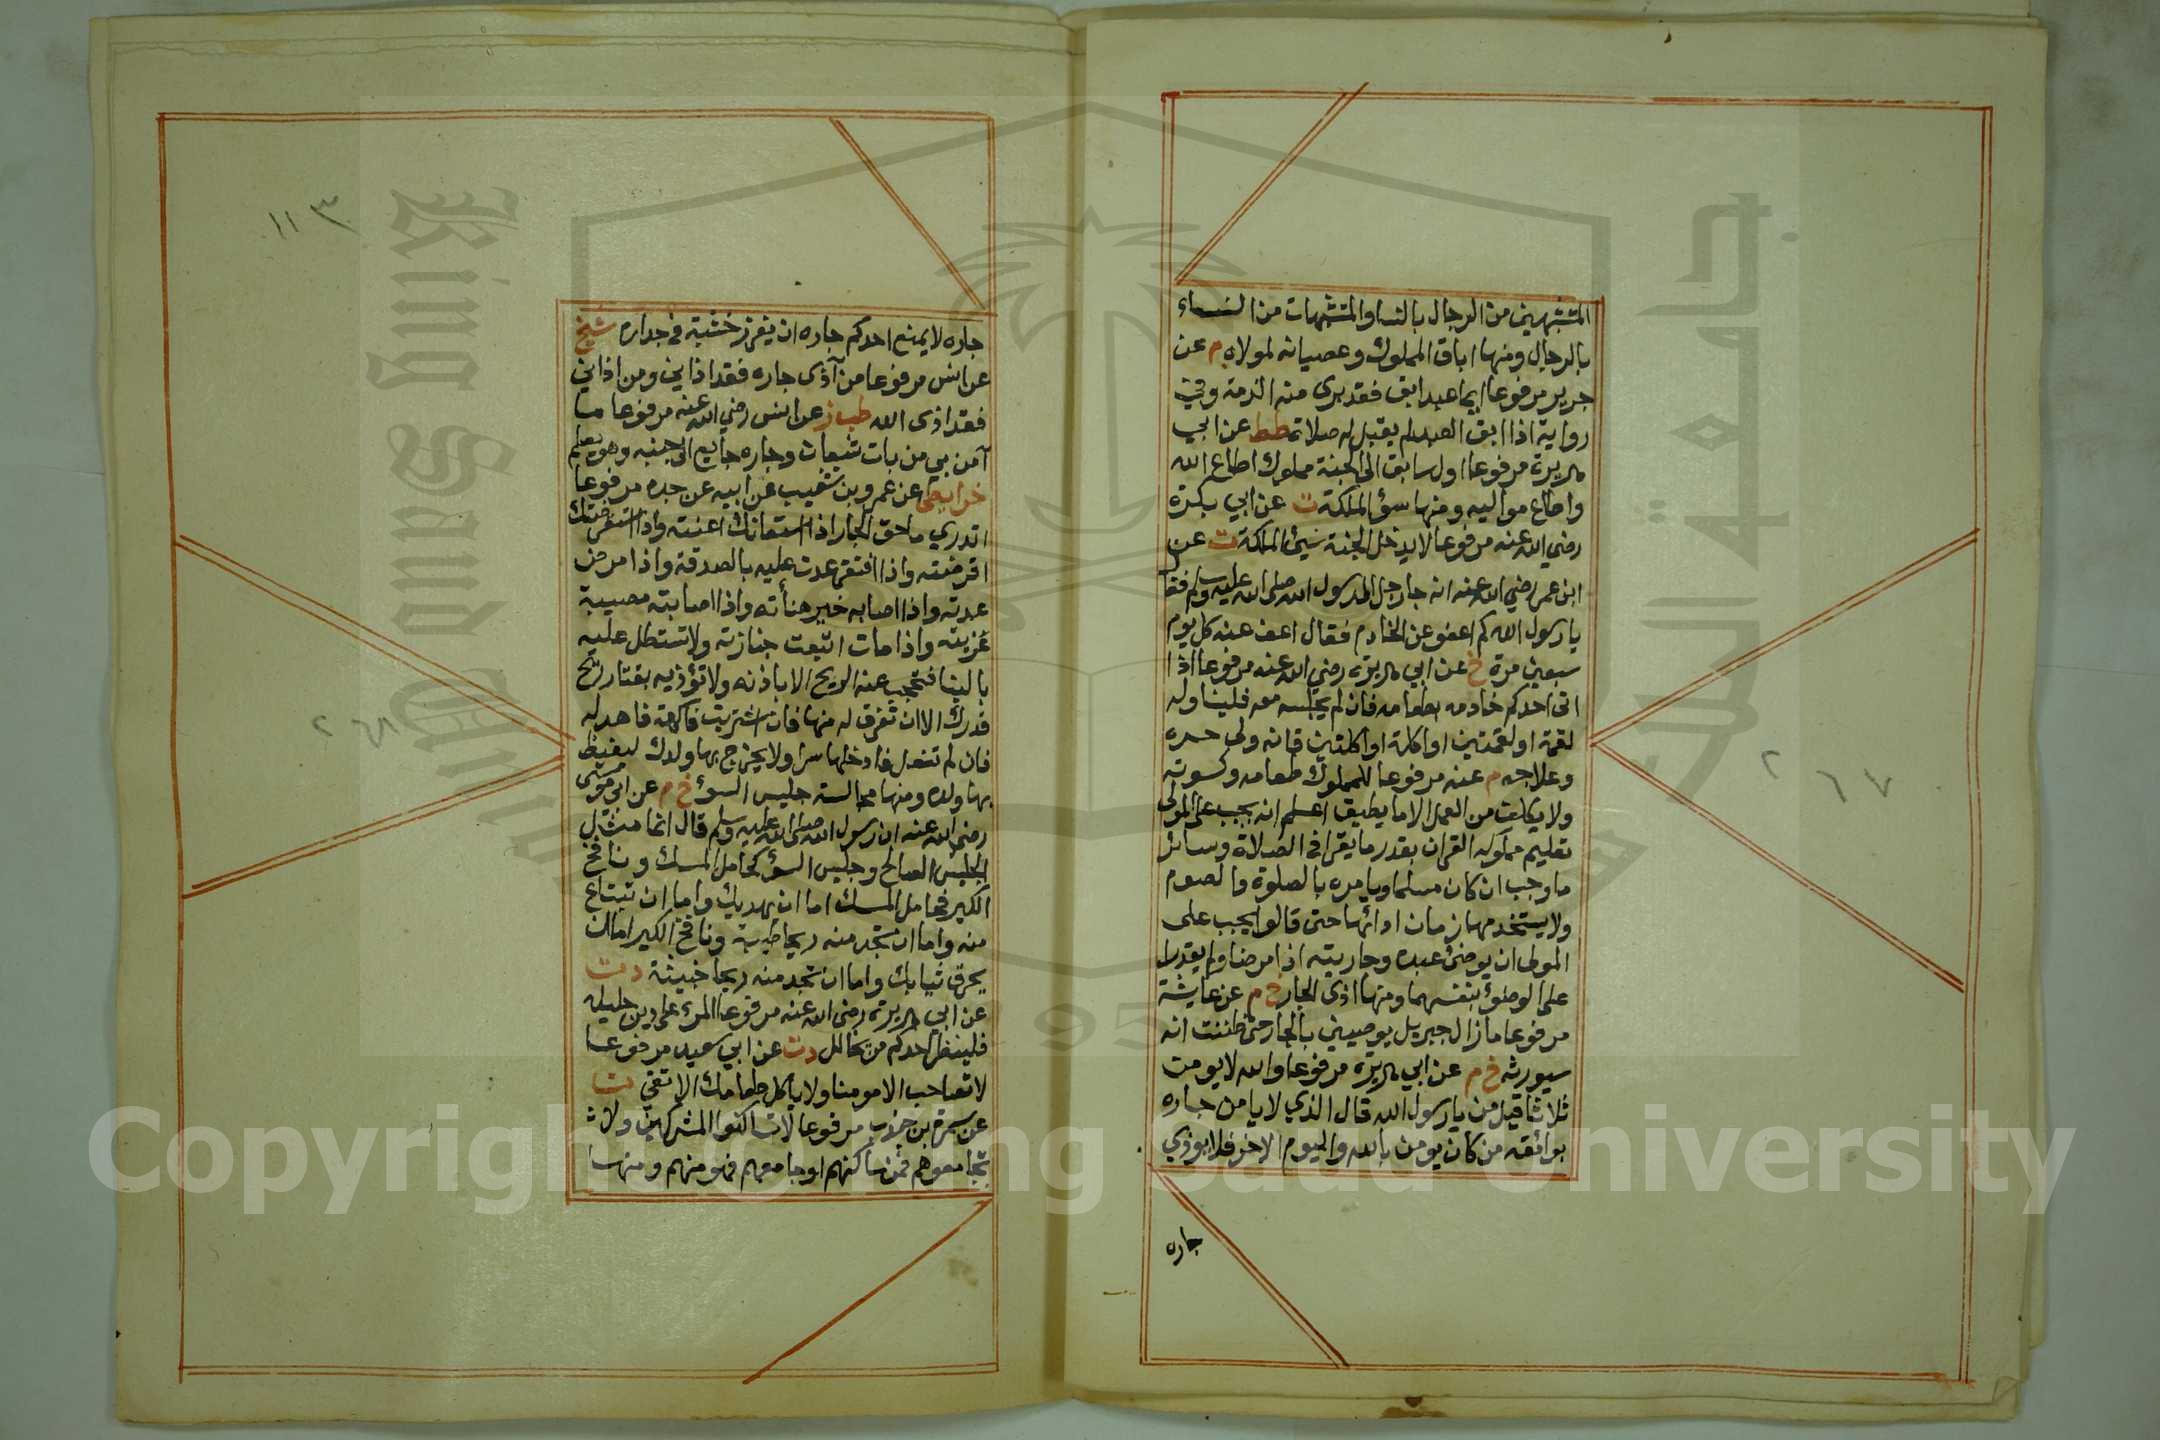 المتشبهين من الرجال بالنسا والمتشبهات من النساء
بالرجال ومنها اباق المملوك وعصيانه لمولاه م عن
جرير مرفوعا ايما عبد ابق فقد برى منه الذمة وفي
رواية اذا ابق العبد لم يقبل له صلاة طط عن ابي
هريرة مرفوعا اول سابق الى الجنة مملوك اطاع الله
واطاع مواليه ومنها سؤ الملكة ت عن ابي بكرة
رضي الله عنه مرفوعا لا يدخل الجنة سيئ الملكة ت عن
ابن عمر رضي الله عنه انه جا رجل الى رسول الله صلى الله عليه وسلم فقال
يا رسول الله كم اعفو عن الخادم فقال اعف عنه كل يوم
سبعين مرة خ عن ابي هريرة رضي الله عنه مرفوعا اذا
اتى احدكم خادمه بطعامه فان لم يجلسه معه فليناوله
لقمة او لقمتين او اكلة او اكلتين فانه ولى حره
وعلاجه م عنه مرفوعا للمملوك طعامه وكسوته
ولا يكلف من العمل الا ما يطيق اعلم انه يجب على المولى
تعليم مملوكه القران بقدر ما يقرا في الصلاة وسائر
ما وجب ان كان مسلما ويامره بالصلوة والصوم
ولا يستخدمها زمان ادائها حتى قالوا يجب على
المولى ان يوضئ عبده وجاريته اذا مرضا ولم يقدرا
على الوضوء بنفسهما ومنها اذى الجار خ م عن عايشة
مرفوعا ما زال جبريل يوصيني بالجار حتى ظننت انه
سيورثه خ م عن ابي هريرة مرفوعا والله لا يومن
ثلاثا قيل من يا رسول الله قال الذي لا يامن جاره
بوائقه من كان يومن بالله واليوم الاخر فلا يوذي
جاره
٢٦٧
١١٣
جاره لا يمنع احدكم جاره ان يغرز خشبة في جداره شيخ
عن انس مرفوعا من آذى جاره فقد اذاني ومن اذاني
فقد اذى الله طب ز عن انس رضي الله عنه مرفوعا ما
آمن بي من بات شبعان وجاره جايع الى جنبه وهو يعلم
خرايطي عن عمرو بن شعيب عن ابيه عن جده مرفوعا
اتدري ما حق الجار اذا استعانك اعنته واذا استقرضتك
اقرضته واذا افتقر عدت عليه بالصدقة واذا مرض
عدته واذا اصابه خير هنأته واذا اصابته مصيبة
عزيته واذا مات اتبعت جنازته ولا تستطل عليه
بالبنا فتحجب عنه الريح الا باذنه ولا تؤذيه بقتار ريح
قدرك الا ان تغرف له منها فان اشتريت فاكهة فاهد له
فان لم تفعل فادخلها سرا ولا يخرج بها ولدك ليغيظ
بها ولده ومنها مجالسة جليس السوء خ م عن ابي موسى
رضي الله عنه ان رسول الله صلى الله عليه وسلم قال انما مثل
الجليس الصالح وجليس السوء كحامل المسك ونافخ
الكير فحامل المسك اما ان يهديك واما ان تبتاع
منه واما ان تجد منه ريحا طيبة ونافخ الكير اما ان
يحرق ثيابك واما ان تجد منه ريحا خبيثة د ت
عن ابي هريرة رضي الله عنه مرفوعا المرء على دين خليله
فلينظر احدكم من يخالل د ت عن ابي سعيد مرفوعا
لا تصاحب الا مومنا ولا ياكل طعامك الا تقي ت
عن سمرة بن جندب مرفوعا لا تساكنوا المشركين ولا
تجامعوهم فمن ساكنهم او جامعهم فهو منهم ومنها
٢٦٨
King Saud University
جامعة الملك سعود
Copyright © King Saud University